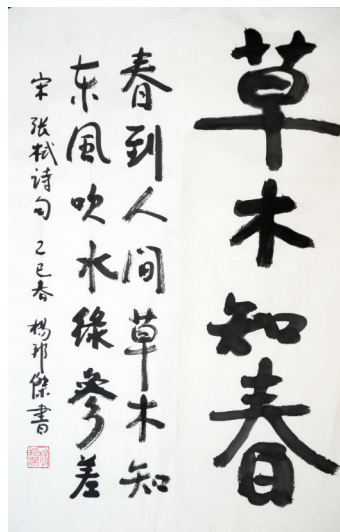 草木知春
春到人间草木知
东風吹水綠參差
宋 張栻詩句 乙巳春 楊邦傑書